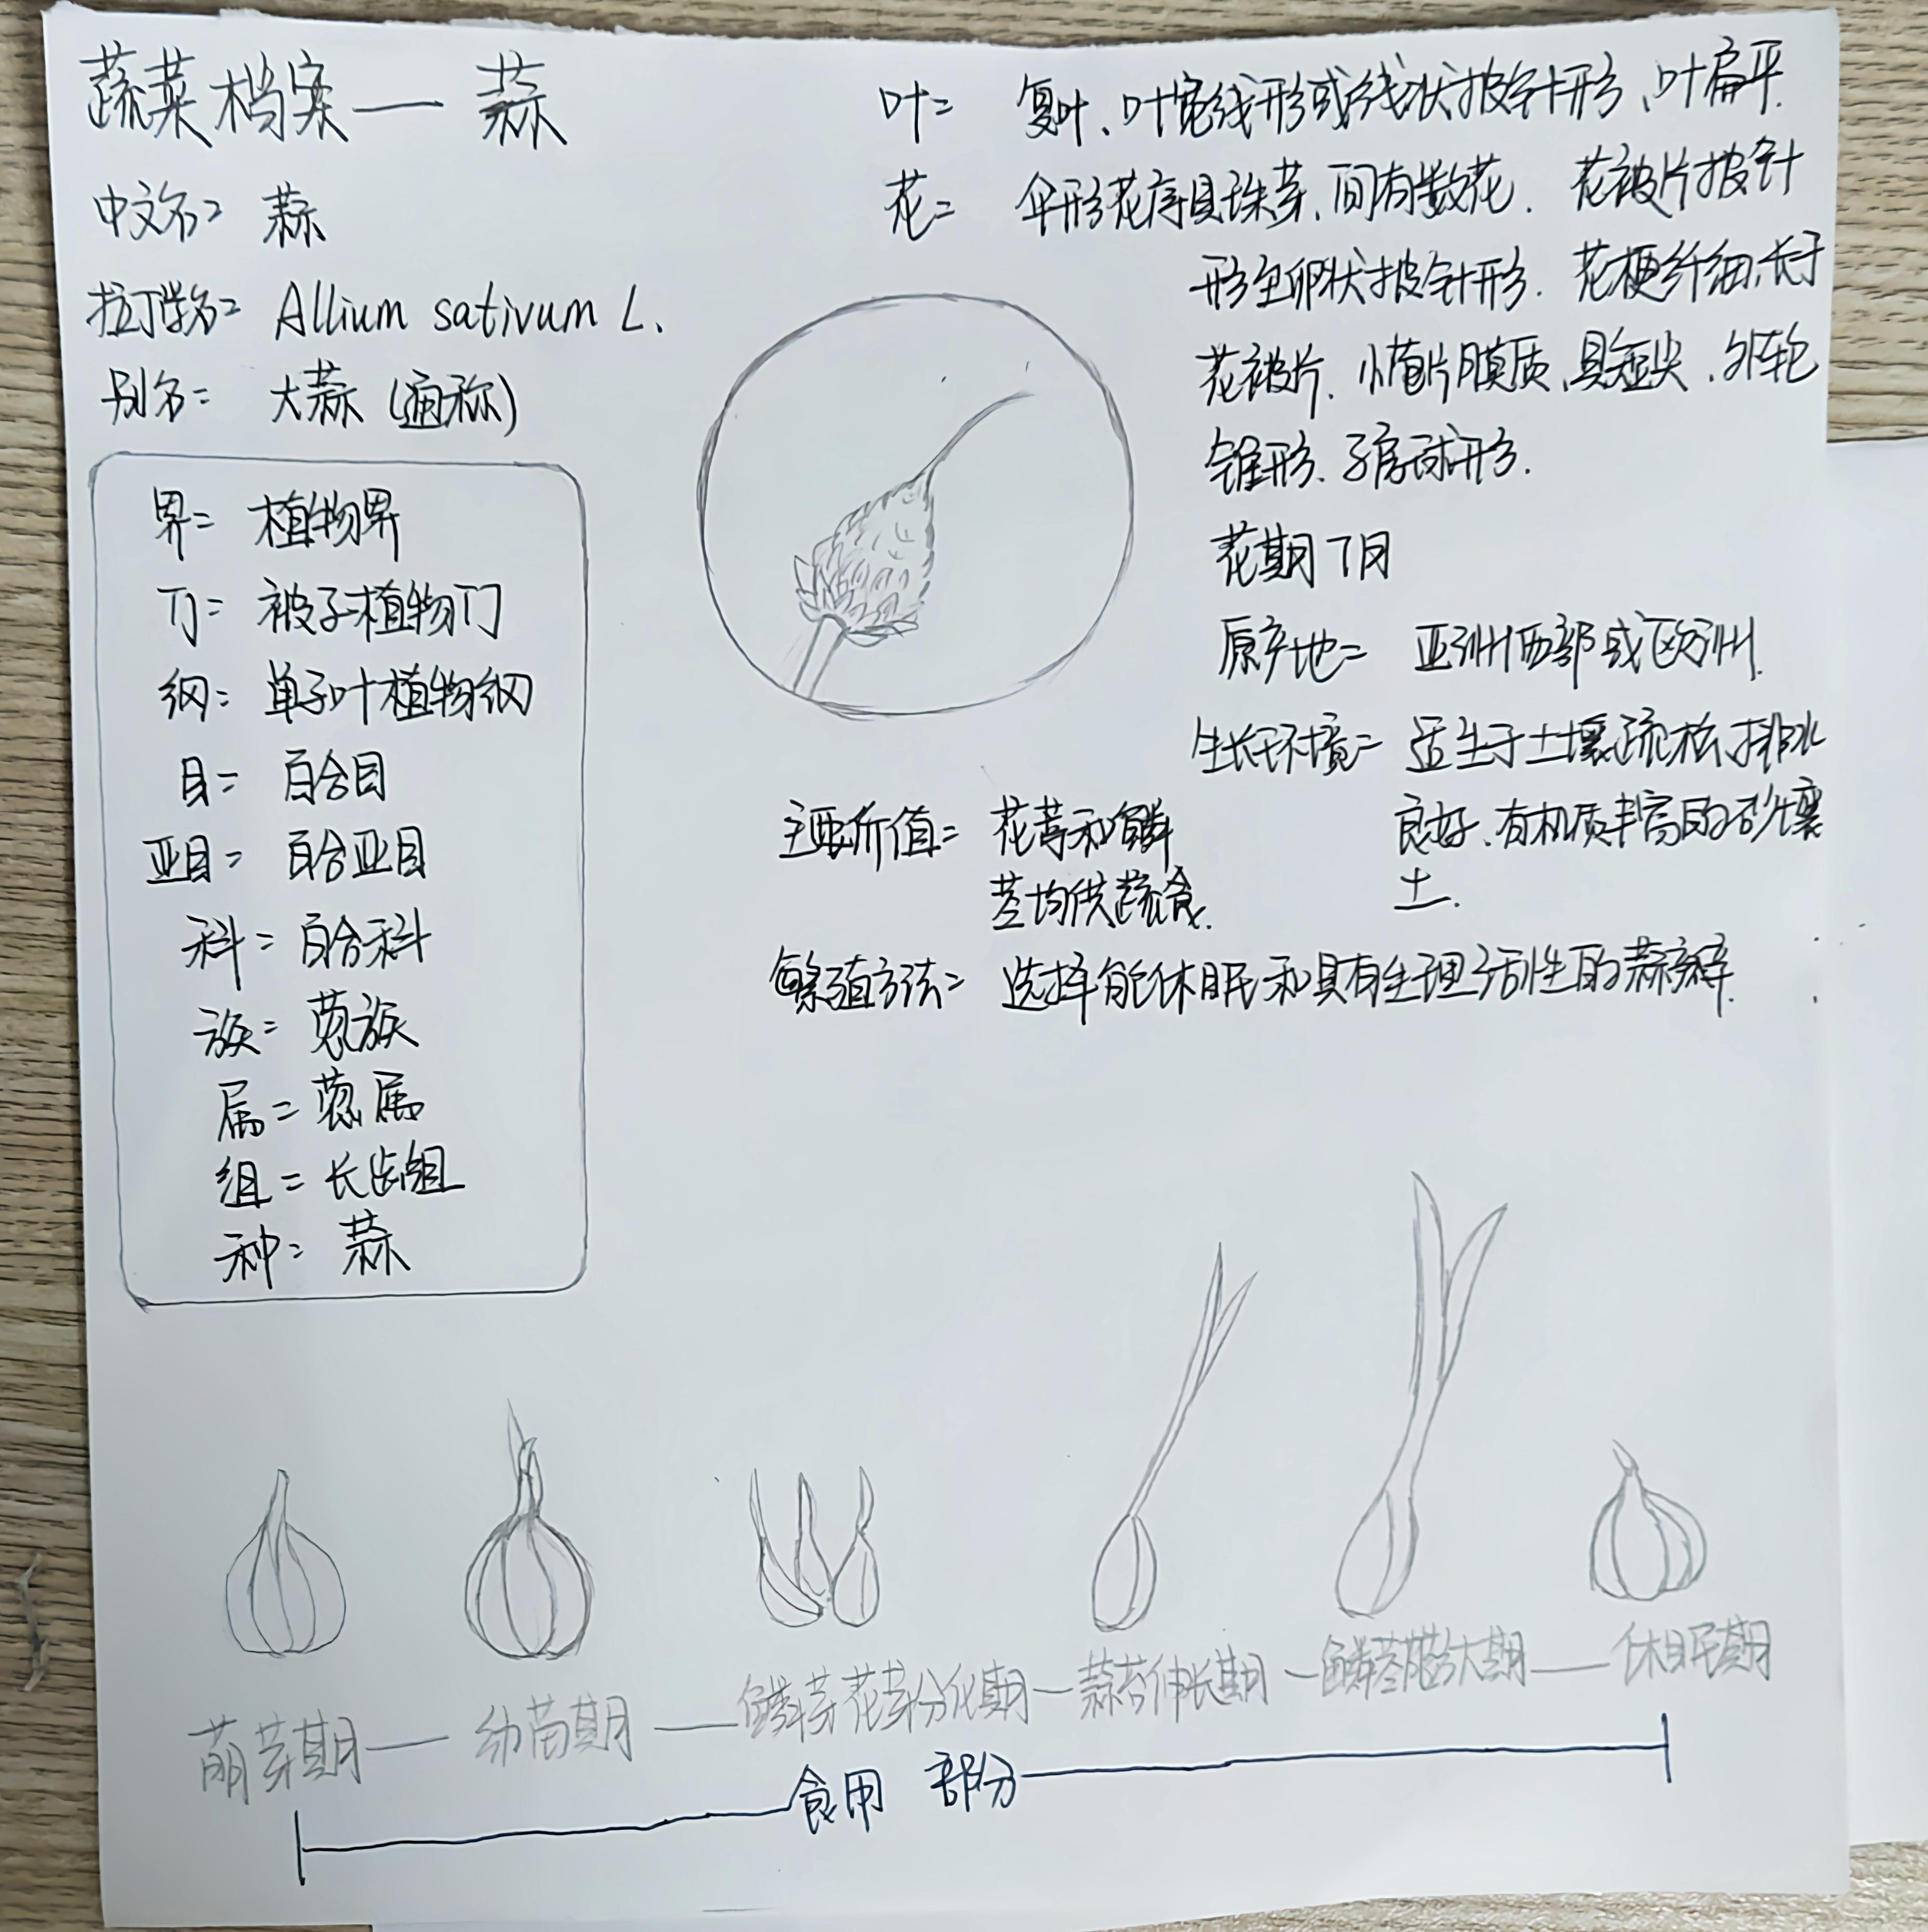 蔬菜档案——蒜
中文名= 蒜
拉丁学名= Allium sativum L.
别名= 大蒜 (通称)
界= 植物界
门= 被子植物门
纲= 单子叶植物纲
目= 百合目
亚目= 百合亚目
科= 百合科
族= 葱族
属= 葱属
组= 长齿组
种= 蒜
叶= 复叶、叶宽线形或线状披针形、叶扁平.
花= 伞形花序具珠芽、间有数花. 花被片披针
形至卵状披针形. 花梗纤细、长于
花被片. 小苞片膜质、具短尖、外轮
锥形、子房球形.
花期7月
原产地= 亚洲西部或欧洲.
生长环境= 适生于土壤疏松、排水
良好、有机质丰富的砂壤
土.
主要价值= 花葶和鳞
茎均供蔬食.
繁殖方法= 选择能休眠和具有生理活性的蒜瓣.
萌芽期——幼苗期——鳞芽花芽分化期—蒜苔伸长期—鳞茎膨大期——休眠期
食用 部分